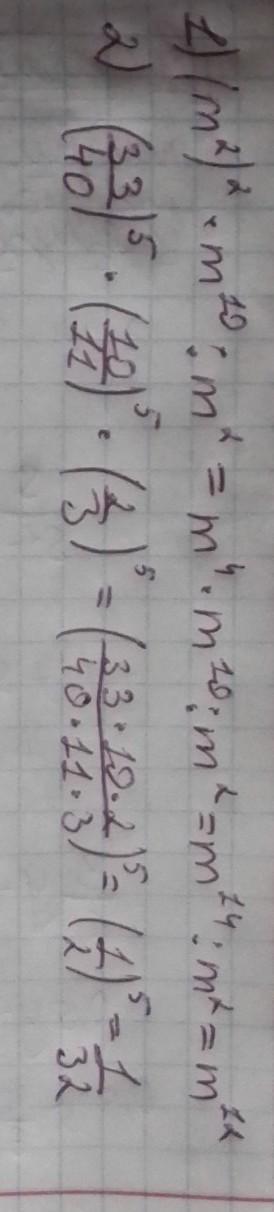 1) (m²)² · m¹⁰ : m² = m⁴ · m¹⁰ : m² = m¹⁴ : m² = m¹²
2) (33/40)⁵ · (10/11)⁵ · (2/3)⁵ = (33·10·2/40·11·3)⁵ = (1/2)⁵ = 1/32